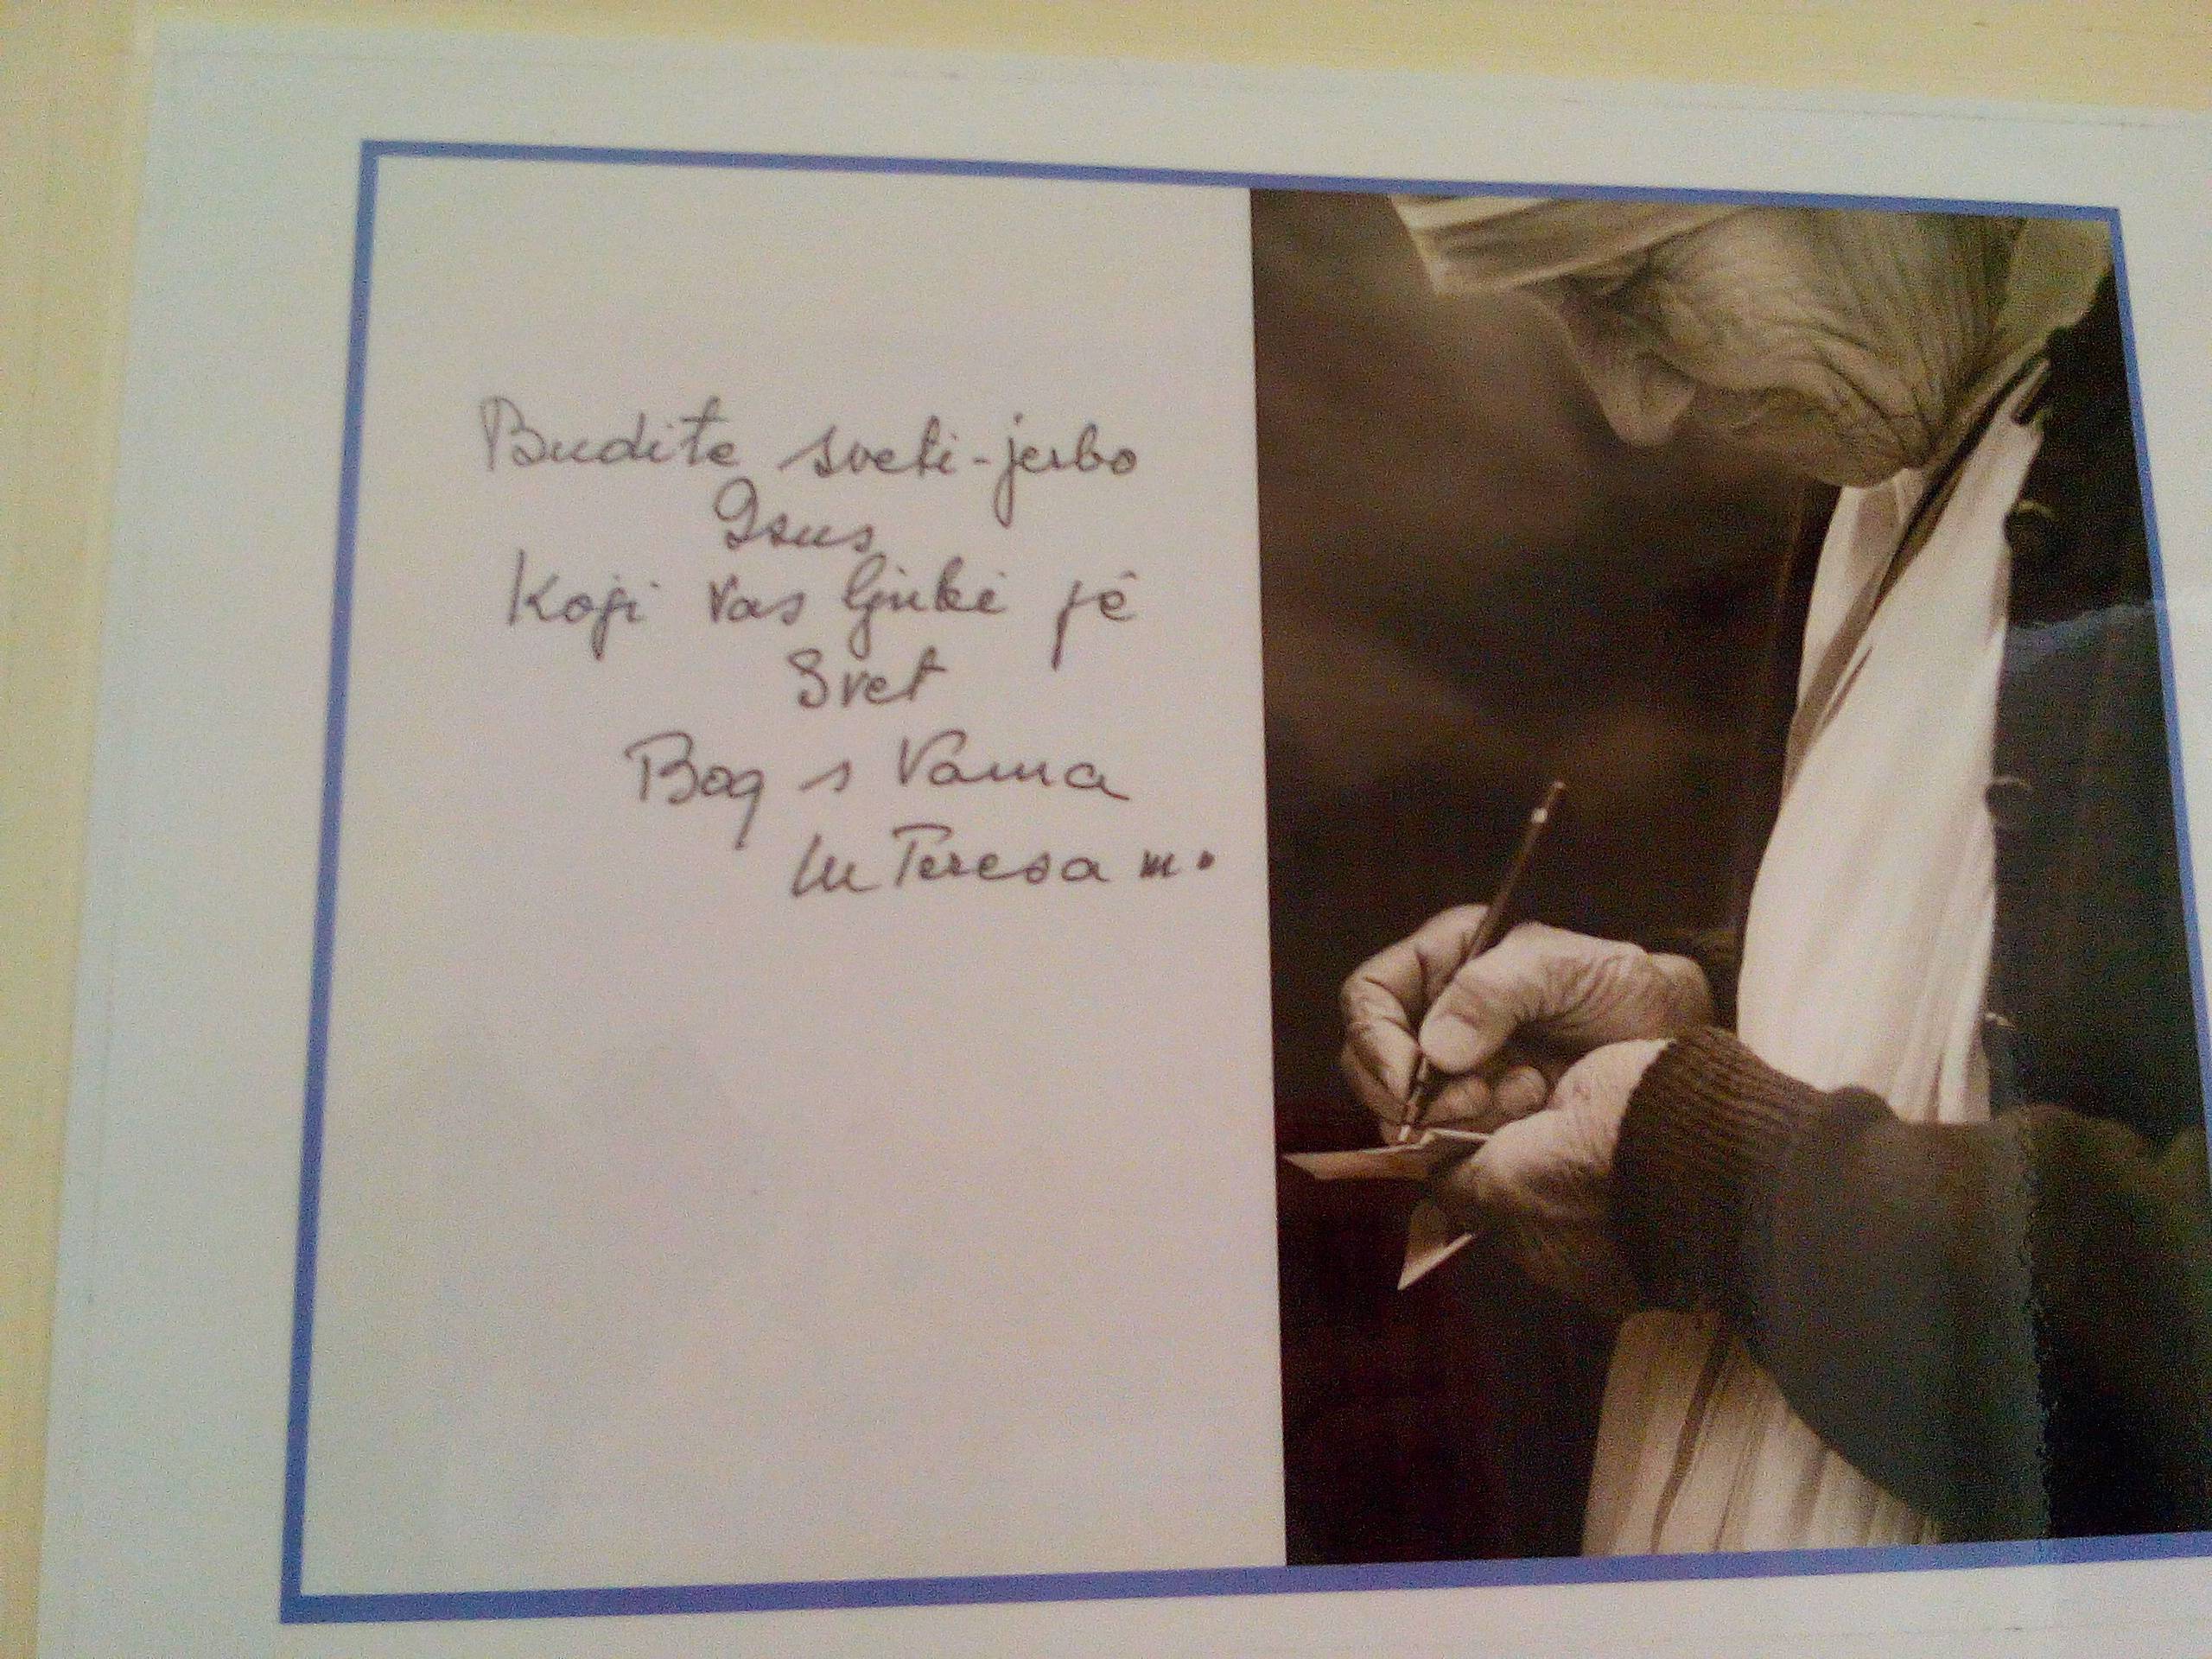 Budite sveti-jerbo
Isus
Koji Vas ljubi je
Svet
Bog s Vama
M Teresa m.